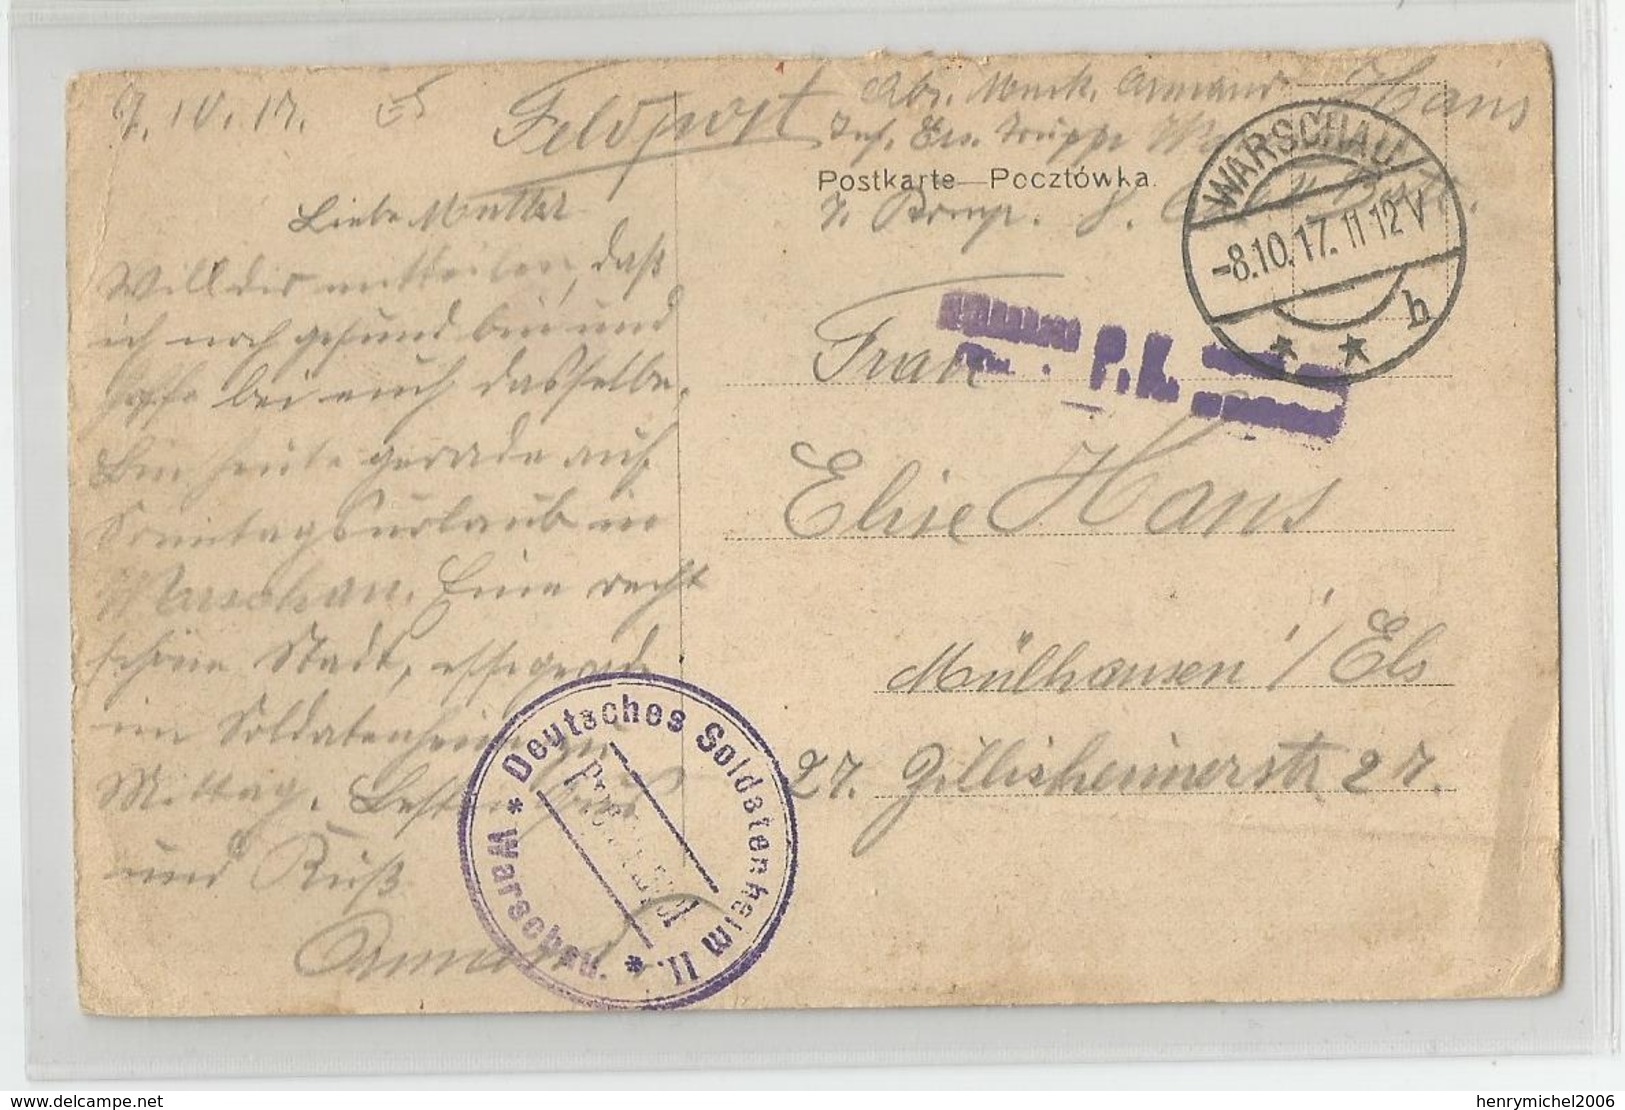 7. 10. 17.
Feldpost
Abs. Musk. Armand Hans
Inf. Ers. Truppe
Postkarte—Pocztówka.
7. Komp.
WARSCHAU
-8.10.17. 11-12 V
h
P.K.
Liebe Mutter
Will dir mitteilen, daß
ich noch gesund bin und
hoffe bei euch dasselbe.
Bin heute gerade auf
Sonntagsurlaub in
Warschau. Eine recht
schöne Stadt, esse gerade
im Soldatenheim zu
Mittag. Besten Gruß
und Kuß
Armand
Frau
Elise Hans
Mülhausen i/Els
27. Zillisheimerstr 27.
* Deutsches Soldatenheim II. *
Warschau.
delcampe.net
henrymichel2006